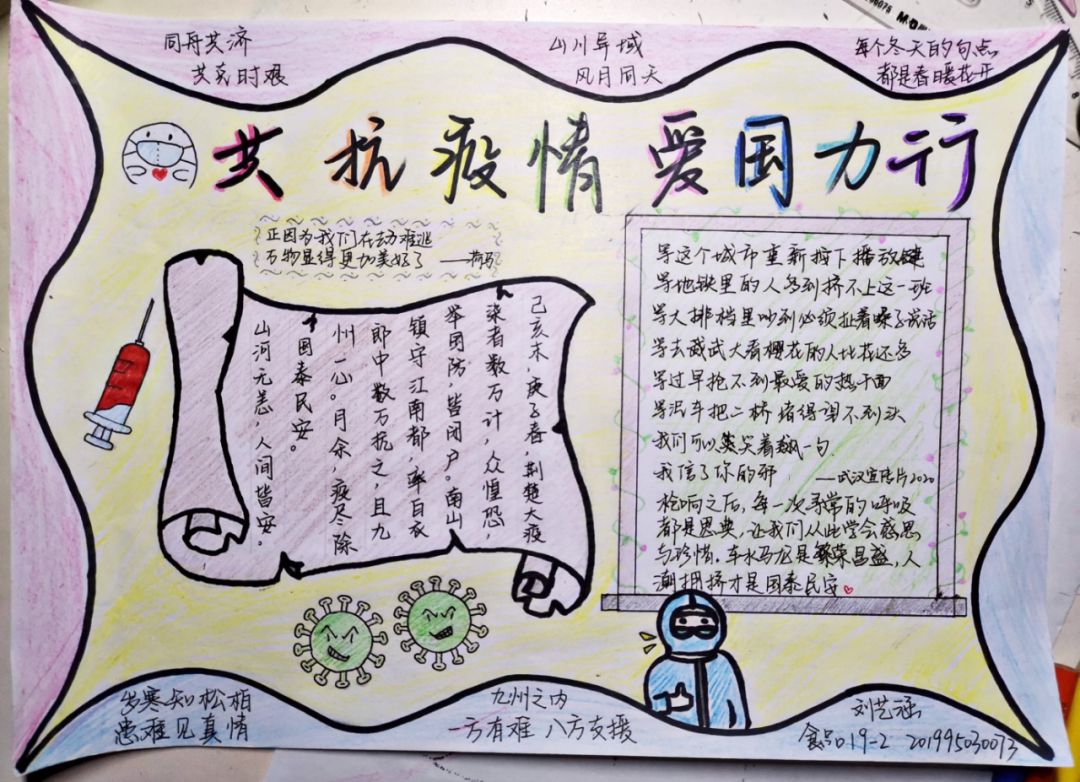 同舟共济
共克时艰
山川异域
风月同天
每个冬天的句点
都是春暖花开
共抗疫情 爱国力行
正因为我们在劫难逃
万物显得更加美好了
己亥末，庚子春，荆楚大疫
染者数万计，众惶恐，
举国防，皆闭户。南山
镇守江南都，率白衣
郎中数万抗之，且九
州一心。月余，疫尽除
国泰民安。
山河无恙，人间皆安。
等这个城市重新按下播放键
等地铁里的人多到挤不上这一班
等大排档里吵到必须扯着嗓子说话
等去武大看樱花的人比花还多
等过早抢不到最爱的热干面
等汽车把二桥堵得调不到头
我们可以笑着飙一句
我信了你的邪 ——武汉宣传片2020
枪响之后，每一次寻常的呼吸
都是恩典，让我们从此学会感恩
与珍惜。车水马龙是繁荣昌盛，人
潮拥挤才是国泰民安
岁寒知松柏
患难见真情
九州之内
一方有难 八方支援
刘艺涵
食品019-2 201995030073